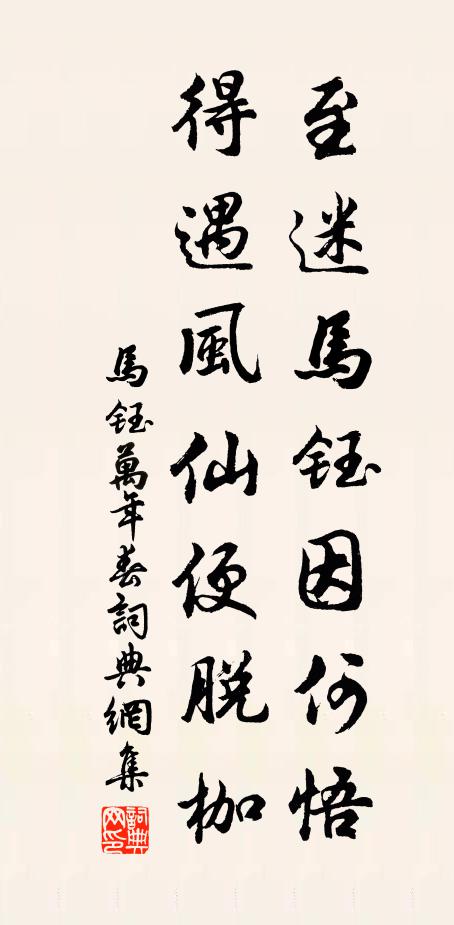 至迷馬鈺因何悟
得遇風仙便脱枷
馬鈺萬年春詞典網集
詞典网印